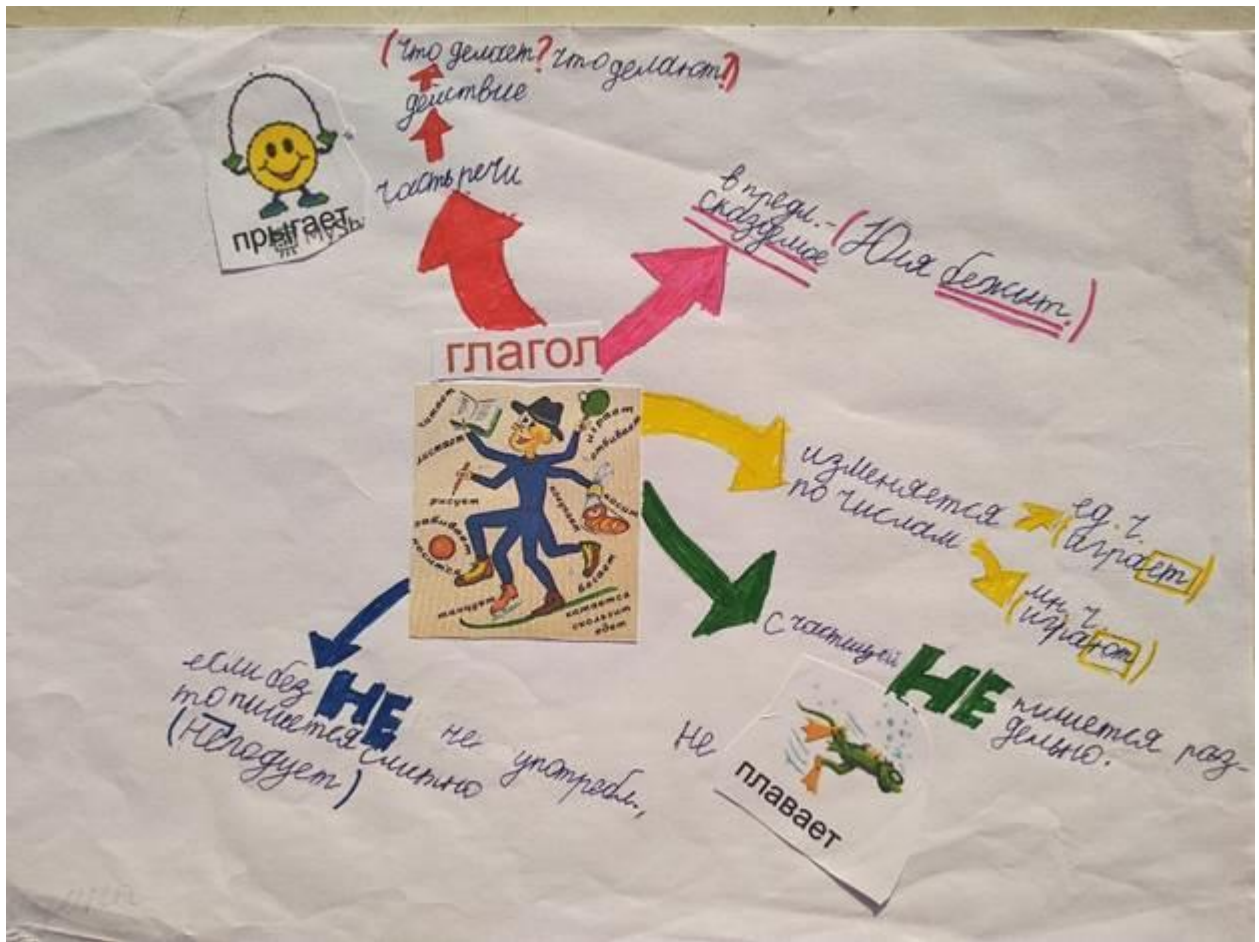 (что делает? что делают?)
действие
часть речи
прыгает
в предл.-
сказуемое
(Юля бежит.)
глагол
читает
листает
рисует
забивает
носится
танцует
играет
отбивает
носит
бегает
катается
скользит
едет
изменяется
по числам
ед. ч.
(играет)
мн. ч.
(играют)
с частицей НЕ пишется раз-
дельно.
не
плавает
если без НЕ не употребл.,
то пишется слитно
(Негодует)